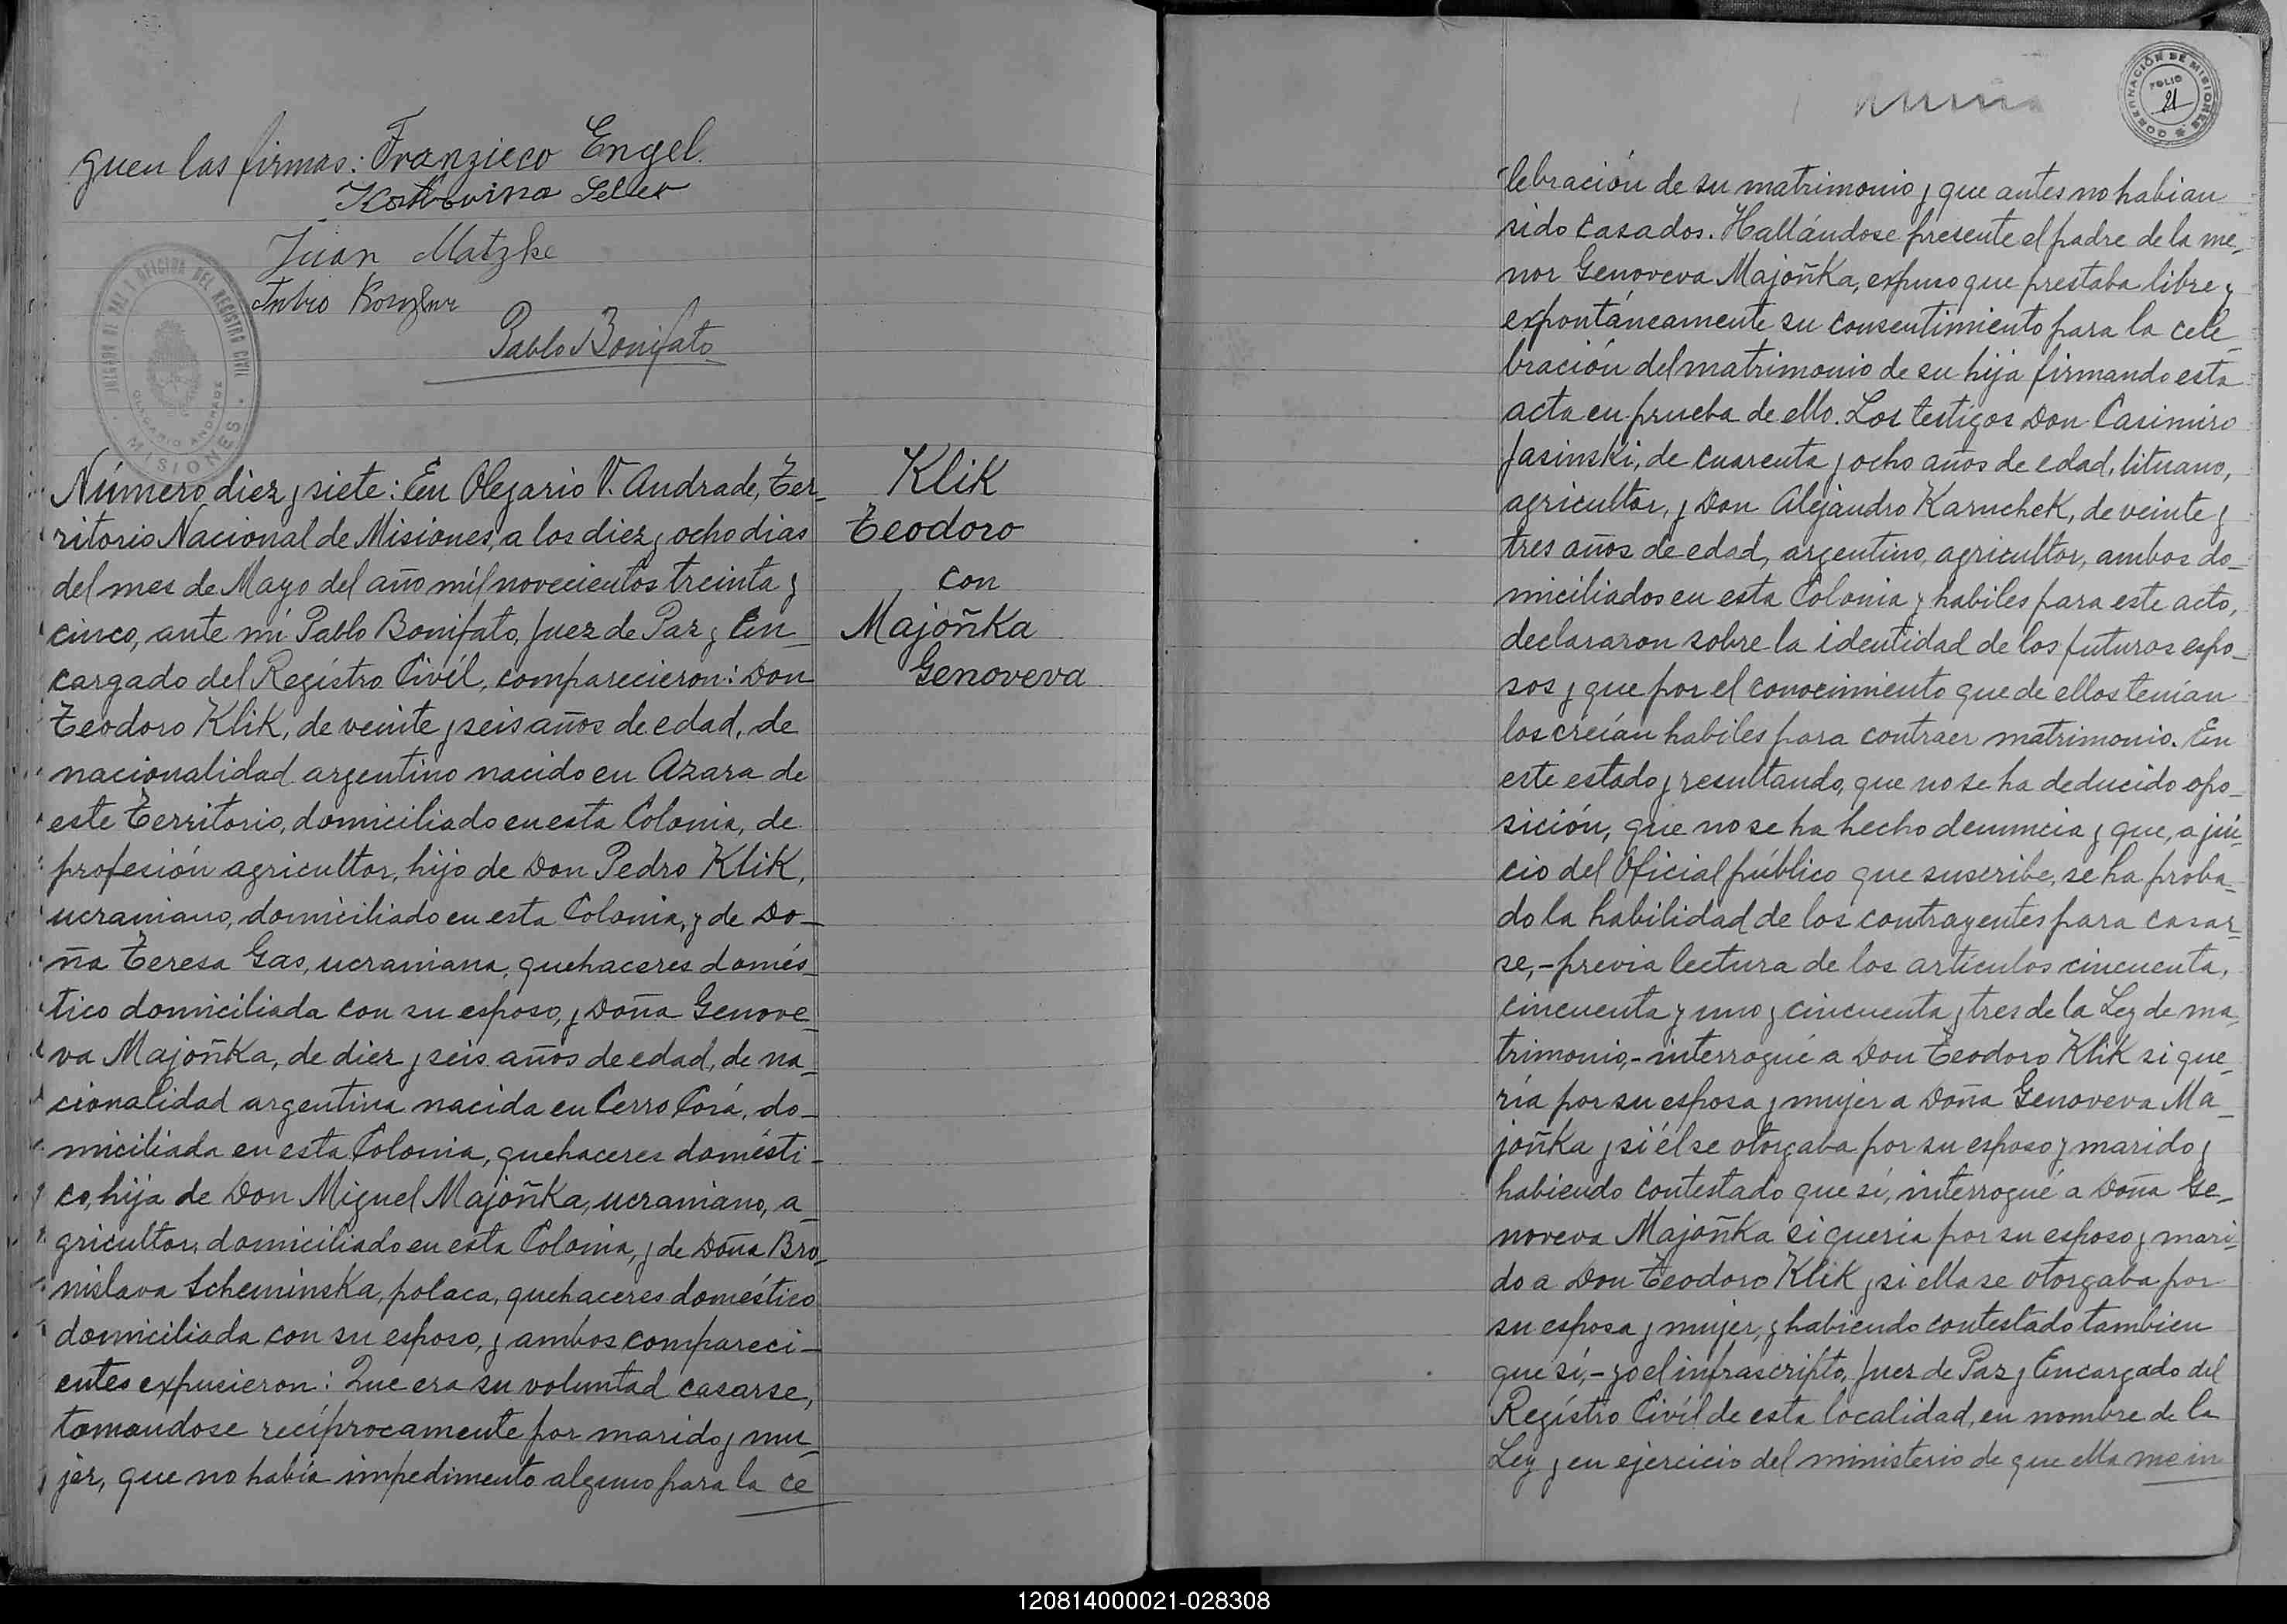 guen las firmas: Franzisco Engel
Juan Matzke
Pablo Bonifato
JUZGADO DE PAZ Y OFICINA DEL REGISTRO CIVIL
OLEGARIO ANDRADE
MISIONES
Número diez y siete: En Olegario V. Andrade, Ter-
ritorio Nacional de Misiones, a los diez y ocho dias
del mes de Mayo del año mil novecientos treinta y
cinco, ante mí Pablo Bonifato, Juez de Paz y En-
cargado del Registro Civíl, comparecieron: Don
Teodoro Klik, de veinte y seis años de edad, de
nacionalidad argentino nacido en Azara de
este Territorio, domiciliado en esta Colonia, de
profesión agricultor, hijo de Don Pedro Klik,
ucraniano, domiciliado en esta Colonia, y de Do-
ña Teresa Gas, ucraniana, quehaceres domés-
tico domiciliada con su esposo, y Doña Genove-
va Majoñka, de diez y seis años de edad, de na-
cionalidad argentina nacida en Cerro Corá, do-
miciliada en esta Colonia, quehaceres domésti-
co, hija de Don Miguel Majoñka, ucraniano, a-
gricultor, domiciliado en esta Colonia, y de Doña Bro-
nislava Scheminska, polaca, quehaceres doméstico
domiciliada con su esposo, y ambos compareci-
entes expusieron: Que era su voluntad casarse,
tomandose recíprocamente por marido y mu-
jer, que no había impedimento alguno para la ce
Klik
Teodoro
con
Majoñka
Genoveva
GOBERNACIÓN DE MISIONES
FOLIO
21
lebración de su matrimonio y que antes no habian
sido casados. Hallándose presente el padre de la me-
nor Genoveva Majoñka, expuso que prestaba libre y
expontáneamente su consentimiento para la cele-
bración del matrimonio de su hija firmando esta
acta en prueba de ello. Los testigos Don Casimiro
Jasinski, de cuarenta y ocho años de edad, lituano,
agricultor, y Don Alejandro Karuchek, de veinte y
tres años de edad, argentino, agricultor, ambos do-
miciliados en esta Colonia y habiles para este acto,
declararon sobre la identidad de los futuros espo-
sos y que por el conocimiento que de ellos tenían
los créían habiles para contraer matrimonio. En
este estado y resultando, que no se ha deducido opo-
sición, que no se ha hecho denuncia y que, a jui-
cio del Oficial público que suscribe, se ha proba-
do la habilidad de los contrayentes para casar-
se,- previa lectura de los artículos cincuenta,
cincuenta y uno y cincuenta y tres de la Ley de ma-
trimonio,- interrogué a Don Teodoro Klik si que-
ría por su esposa y mujer a Doña Genoveva Ma-
joñka y si él se otorgaba por su esposo y marido y
habiendo contestado que sí, interrogué a Doña Ge-
noveva Majoñka si queria por su esposo y mari-
do a Don Teodoro Klik y si ella se otorgaba por
su esposa y mujer, y habiendo contestado tambien
que sí,- yo el infrascripto, Juez de Paz y Encargado del
Registro Civíl de esta localidad, en nombre de la
Ley y en ejercicio del ministerio de que ella me in
120814000021-028308